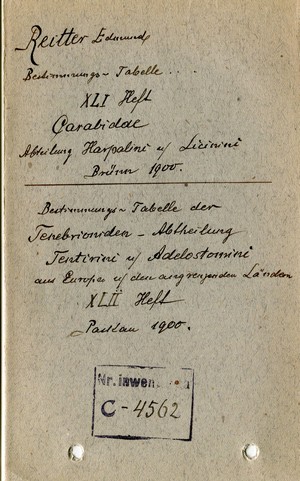 Reitter Edmund
Bestimmungs-Tabelle...
XLI Heft
Carabidae
Abteilung Harpalini u/ Licinini
Brünn 1900.
Bestimmungs-Tabelle der
Tenebrioniden-Abtheilung
Tentirini u/ Adelostomini
aus Europa u/ den angrenzenden Ländern
XLII Heft
Paskau 1900.
Nr. inwen
C-4562